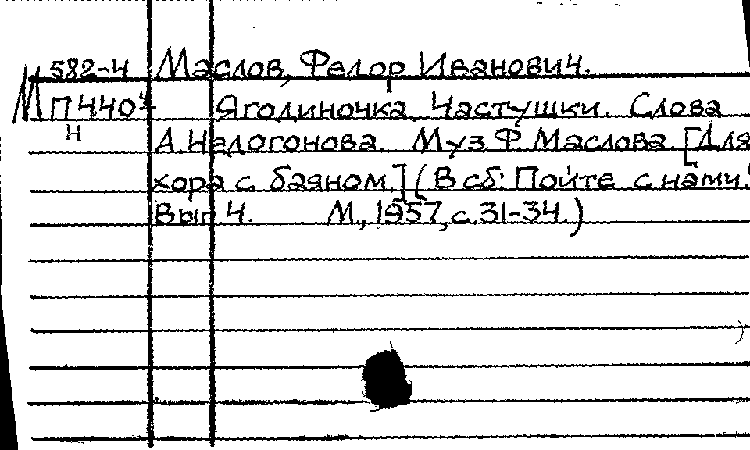 М 582-4 Маслов, Федор Иванович.
П440 Ягодиночка. Частушки. Слова
Н
А. Недогонова. Муз Ф. Маслова [Для
хора с баяном.] (В сб: Пойте с нами!
Вып 4. М., 1957, с. 31-34.)